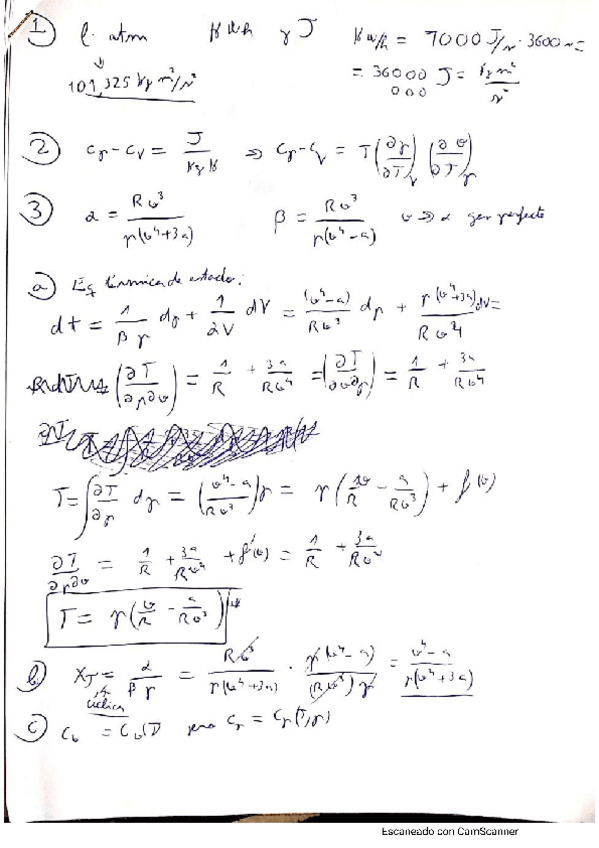 1) l. atm    kWh y J    kWh = 1000 J/s · 3600 s =
101,325 kg m²/s²    = 3600000 J = kg m²/s²
2) Cp - Cv = J/kg K => Cp - Cv = T(∂p/∂T)v (∂v/∂T)p
3) α = Rv³/p(v⁴+3a)    β = Rv³/p(v⁴-a)    v => ∞ gas perfecto
a) Eq térmica de estado:
dt = 1/βp dp + 1/αV dV = (v⁴-a)/Rv³ dp + p(v⁴+3a)/Rv⁴ dv =
(∂T/∂p∂v) = 1/R + 3a/Rv⁴ = (∂T/∂v∂p) = 1/R + 3a/Rv⁴
T = ∫∂T/∂p dp = (v⁴-a/Rv³)p = p(v/R - a/Rv³) + f(v)
∂T/∂p∂v = 1/R + 3a/Rv⁴ + f'(v) = 1/R + 3a/Rv⁴
T = p(v/R - a/Rv³)
b) XT = α/βp = Rv³/p(v⁴+3a) · p(v⁴-a)/(Rv³)p = v⁴-a/p(v⁴+3a)
c) Cv = Cv(T) pero Cp = Cp(T,p)
Escaneado con CamScanner